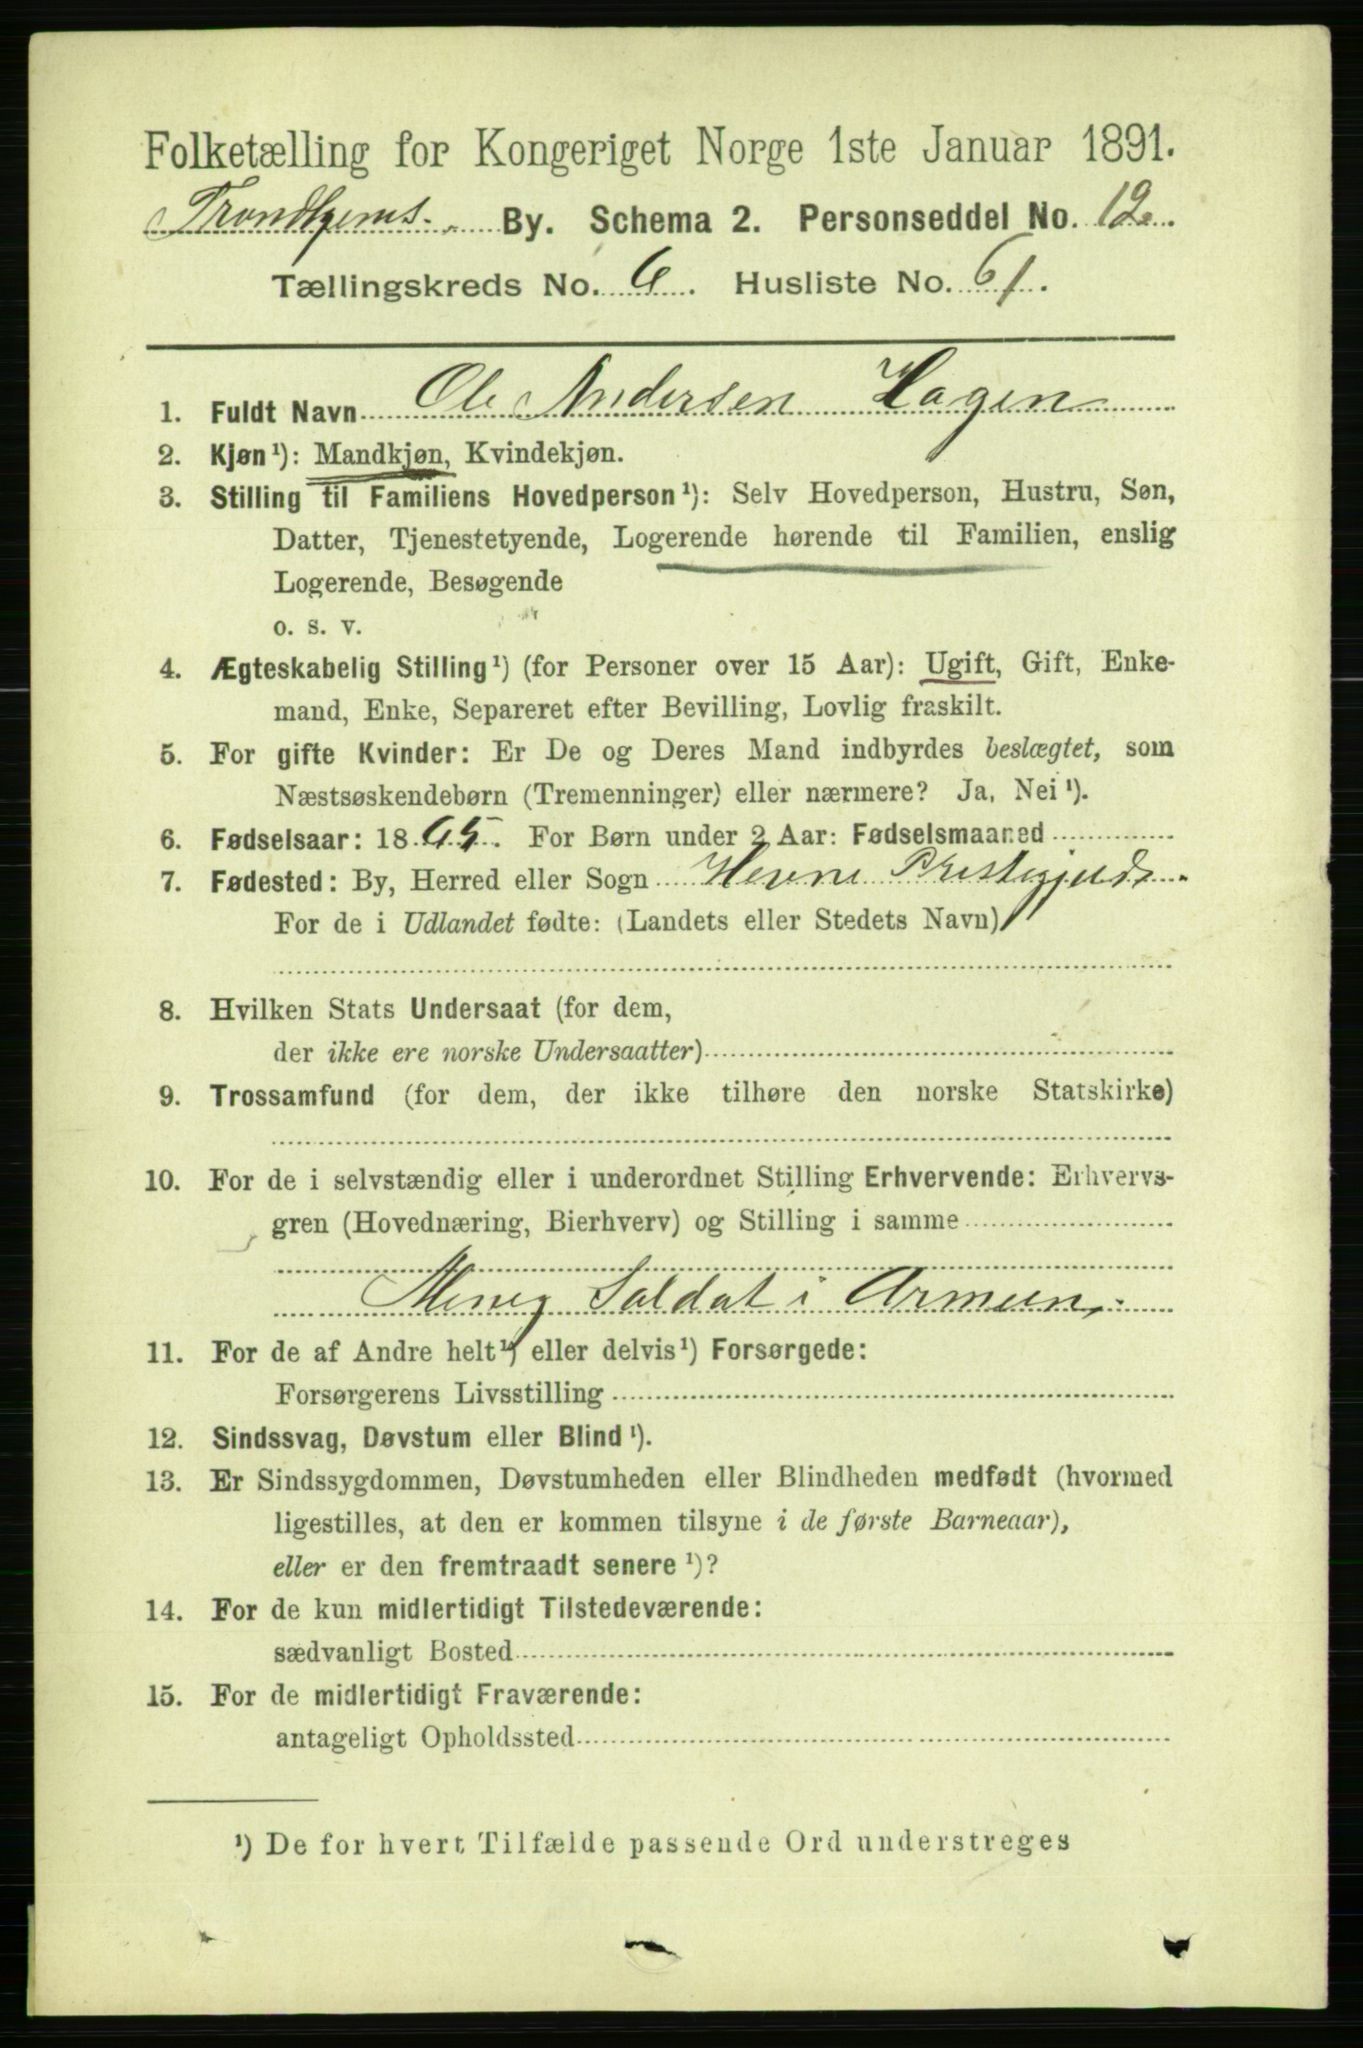 Folketælling for Kongeriget Norge 1ste Januar 1891.
Trondhjems By. Schema 2. Personseddel No. 12.
Tællingskreds No. 6. Husliste No. 61.
1. Fuldt Navn Ole Andersen Hagen
2. Kjøn¹): Mandkjøn, Kvindekjøn.
3. Stilling til Familiens Hovedperson¹): Selv Hovedperson, Hustru, Søn,
Datter, Tjenestetyende, Logerende hørende til Familien, enslig
Logerende, Besøgende
o. s. v.
4. Ægteskabelig Stilling¹) (for Personer over 15 Aar): Ugift, Gift, Enke-
mand, Enke, Separeret efter Bevilling, Lovlig fraskilt.
5. For gifte Kvinder: Er De og Deres Mand indbyrdes beslægtet, som
Næstsøskendebørn (Tremenninger) eller nærmere? Ja, Nei¹).
6. Fødselsaar: 1865. For Børn under 2 Aar: Fødselsmaaned
7. Fødested: By, Herred eller Sogn Hevne Prestegjeld.
For de i Udlandet fødte: (Landets eller Stedets Navn)
8. Hvilken Stats Undersaat (for dem,
der ikke ere norske Undersaatter)
9. Trossamfund (for dem, der ikke tilhøre den norske Statskirke)
10. For de i selvstændig eller i underordnet Stilling Erhvervende: Erhvervs-
gren (Hovednæring, Bierhverv) og Stilling i samme
Menig Soldat i Armeen.
11. For de af Andre helt¹) eller delvis¹) Forsørgede:
Forsørgerens Livsstilling
12. Sindssvag, Døvstum eller Blind¹).
13. Er Sindssygdommen, Døvstumheden eller Blindheden medfødt (hvormed
ligestilles, at den er kommen tilsyne i de første Barneaar),
eller er den fremtraadt senere¹)?
14. For de kun midlertidigt Tilstedeværende:
sædvanligt Bosted
15. For de midlertidigt Fraværende:
antageligt Opholdssted
¹) De for hvert Tilfælde passende Ord understreges